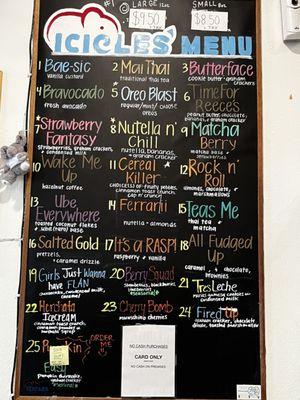 LARGE 12oz
$9.50
+ TAX
SMALL 8oz
$8.50
+ TAX
ICICLES MENU
1 Bae-sic
vanilla custard
2 Mai Thai
traditional thai tea
3 Butterface
cookie butter + graham crackers
4 Bravocado
fresh avocado
5 Oreo Blast
regular/mint/choco oreos
6 Time For Reeces
peanut butter, chocolate, banana + graham crackers
*7 Strawberry Fantasy
strawberries, graham crackers,
+ condensed milk
8 Nutella n' Chill
nutella, bananas,
+ graham crackers
9 Matcha Berry
matcha base +
strawberries
10 Wake Me Up
hazelnut coffee
11 Cereal Killer
choice(s) of fruity pebbles,
cinnamon toast crunch,
12 Rock n' Roll
almonds, chocolate, +
marshmallows
13 Ube Everywhere
toasted coconut flakes
+ ube (taro) base
14 Ferranli
nutella + almonds
15 Teas Me
thai tea +
matcha
16 Salted Gold
pretzels,
+ caramel drizzle
17 It's a RASP!
raspberry + vanilla
18 All Fudged Up
caramel, + chocolate,
brownies
19 Girls Just Wanna have FLAN
20 Berry Squad
strawberries, blackberries
21 Tres Leche
22 Horchata Icecream
cinnamon toast crunch,
23 Cherry Bomb
maraschino cherries
24 Fired Up
25 Pumpkin
ORDER ME
Easy
NO CASH PURCHASES
CARD ONLY
NO CASH ON PREMISES